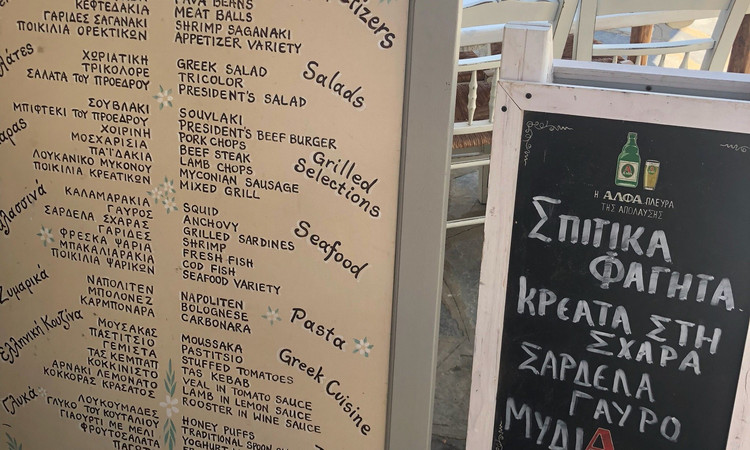 ΚΕΦΤΕΔΑΚΙΑ
ΓΑΡΙΔΕΣ ΣΑΓΑΝΑΚΙ
ΠΟΙΚΙΛΙΑ ΟΡΕΚΤΙΚΩΝ
ΧΩΡΙΑΤΙΚΗ
ΤΡΙΚΟΛΟΡΕ
ΣΑΛΑΤΑ ΤΟΥ ΠΡΟΕΔΡΟΥ
ΣΟΥΒΛΑΚΙ
ΜΠΙΦΤΕΚΙ ΤΟΥ ΠΡΟΕΔΡΟΥ
ΧΟΙΡΙΝΗ
ΜΟΣΧΑΡΙΣΙΑ
ΠΑΪΔΑΚΙΑ
ΛΟΥΚΑΝΙΚΟ ΜΥΚΟΝΟΥ
ΠΟΙΚΙΛΙΑ ΚΡΕΑΤΙΚΩΝ
ΚΑΛΑΜΑΡΑΚΙΑ
ΓΑΥΡΟΣ
ΣΑΡΔΕΛΑ ΣΧΑΡΑΣ
ΓΑΡΙΔΕΣ
ΦΡΕΣΚΑ ΨΑΡΙΑ
ΜΠΑΚΑΛΙΑΡΑΚΙΑ
ΠΟΙΚΙΛΙΑ ΨΑΡΙΚΩΝ
Ζυμαρικά
ΝΑΠΟΛΙΤΕΝ
ΜΠΟΛΟΝΕΖ
ΚΑΡΜΠΟΝΑΡΑ
Ελληνική Κουζίνα
ΜΟΥΣΑΚΑΣ
ΠΑΣΤΙΤΣΙΟ
ΓΕΜΙΣΤΑ
ΤΑΣ ΚΕΜΠΑΠ
ΚΟΚΚΙΝΙΣΤΟ
ΑΡΝΑΚΙ ΛΕΜΟΝΑΤΟ
ΚΟΚΚΟΡΑΣ ΚΡΑΣΑΤΟΣ
Γλυκά
ΛΟΥΚΟΥΜΑΔΕΣ
ΓΛΥΚΟ ΤΟΥ ΚΟΥΤΑΛΙΟΥ
ΓΙΑΟΥΡΤΙ ΜΕ ΜΕΛΙ
ΦΡΟΥΤΟΣΑΛΑΤΑ
BEANS
MEAT BALLS
SHRIMP SAGANAKI
APPETIZER VARIETY
Salads
GREEK SALAD
TRICOLOR
PRESIDENT'S SALAD
Grilled
Selections
SOUVLAKI
PRESIDENT'S BEEF BURGER
PORK CHOPS
BEEF STEAK
LAMB CHOPS
MYCONIAN SAUSAGE
MIXED GRILL
Seafood
SQUID
ANCHOVY
GRILLED SARDINES
SHRIMP
FRESH FISH
COD FISH
SEAFOOD VARIETY
Pasta
NAPOLITEN
BOLOGNESE
CARBONARA
Greek Cuisine
MOUSSAKA
PASTITSIO
STUFFED TOMATOES
TAS KEBAB
VEAL IN TOMATO SAUCE
LAMB IN LEMON SAUCE
ROOSTER IN WINE SAUCE
HONEY PUFFS
TRADITIONAL SPOON
Η ΑΛΦΑ ΠΛΕΥΡΑ
ΤΗΣ ΑΠΟΛΑΥΣΗΣ
ΣΠΙΤΙΚΑ
ΦΑΓΗΤΑ
ΚΡΕΑΤΑ ΣΤΗ
ΣΧΑΡΑ
ΣΑΡΔΕΛΑ
ΓΑΥΡΟ
ΜΥΔΙΑ